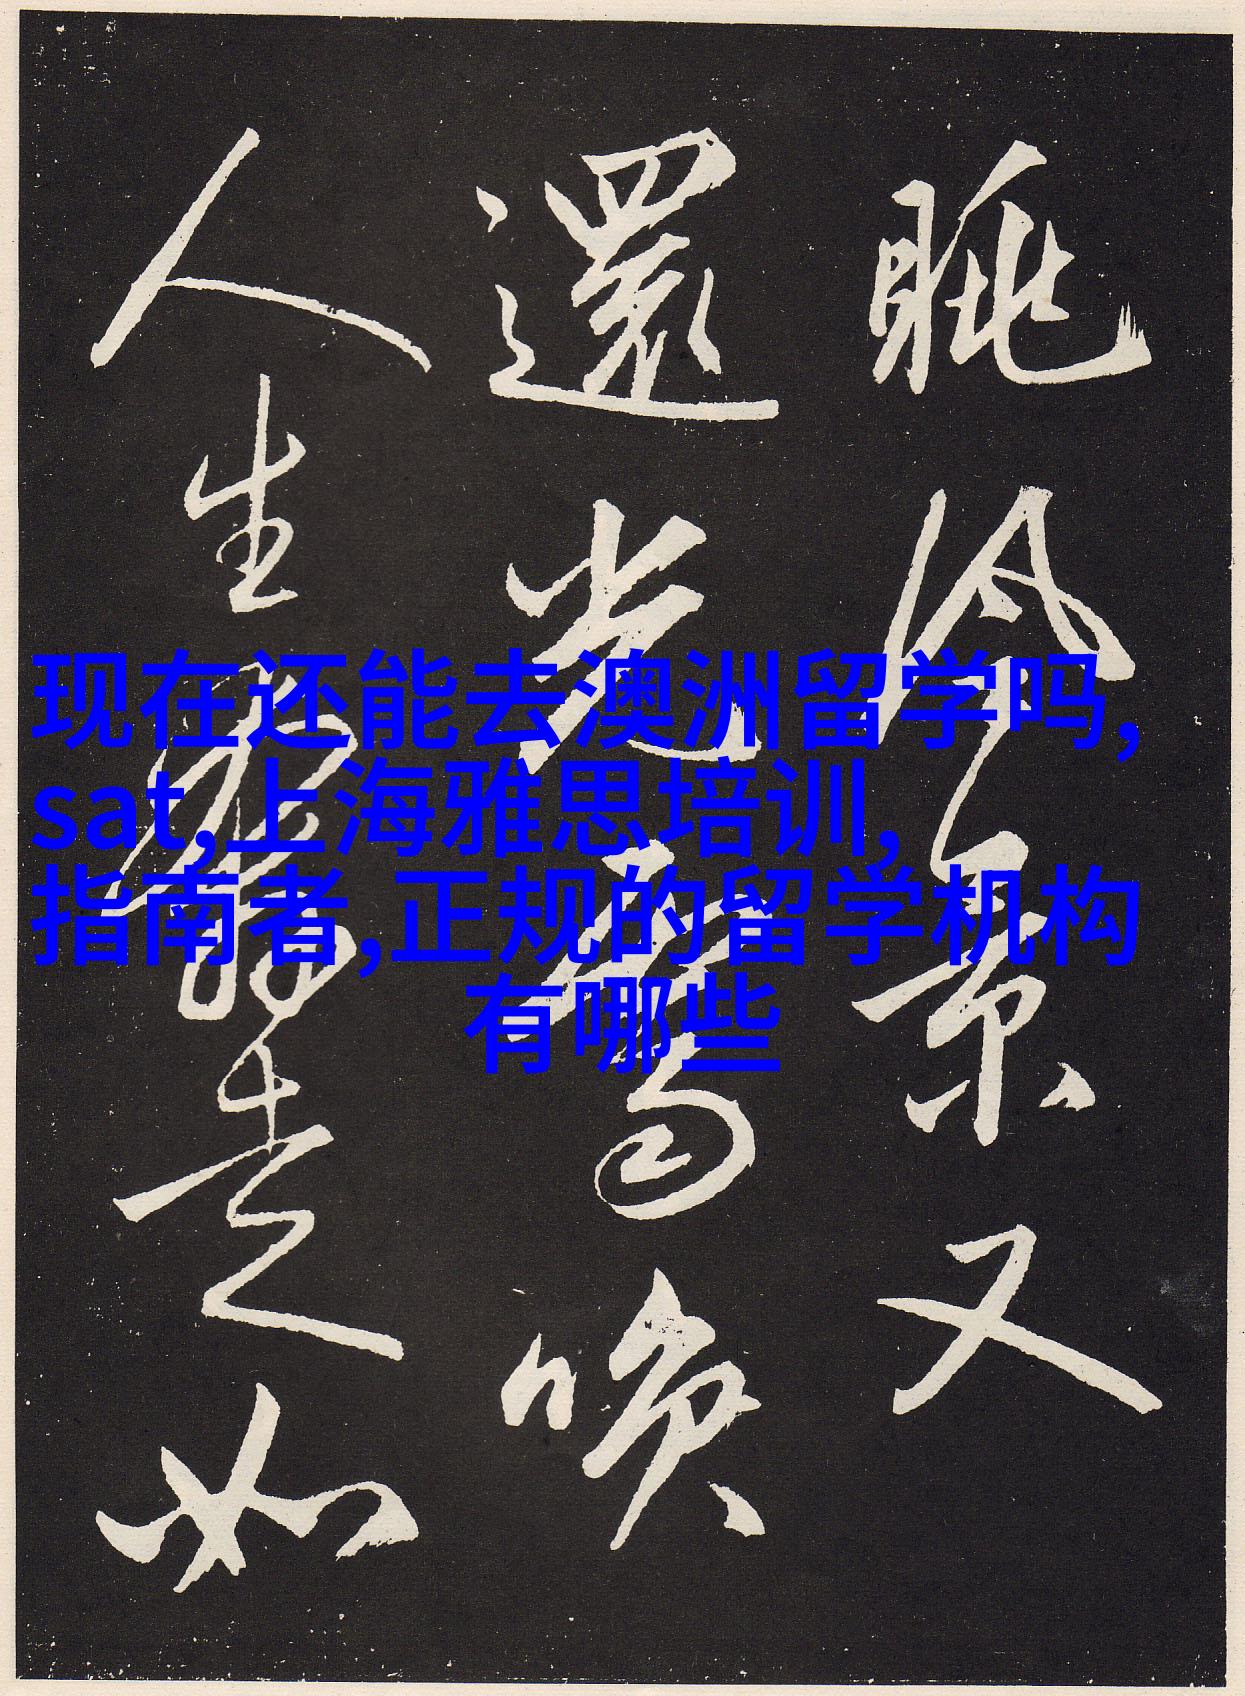 现在还能去澳洲留学吗,
sat,上海雅思培训,
指南者,正规的留学机构
有哪些
眺景又
還光
人生如